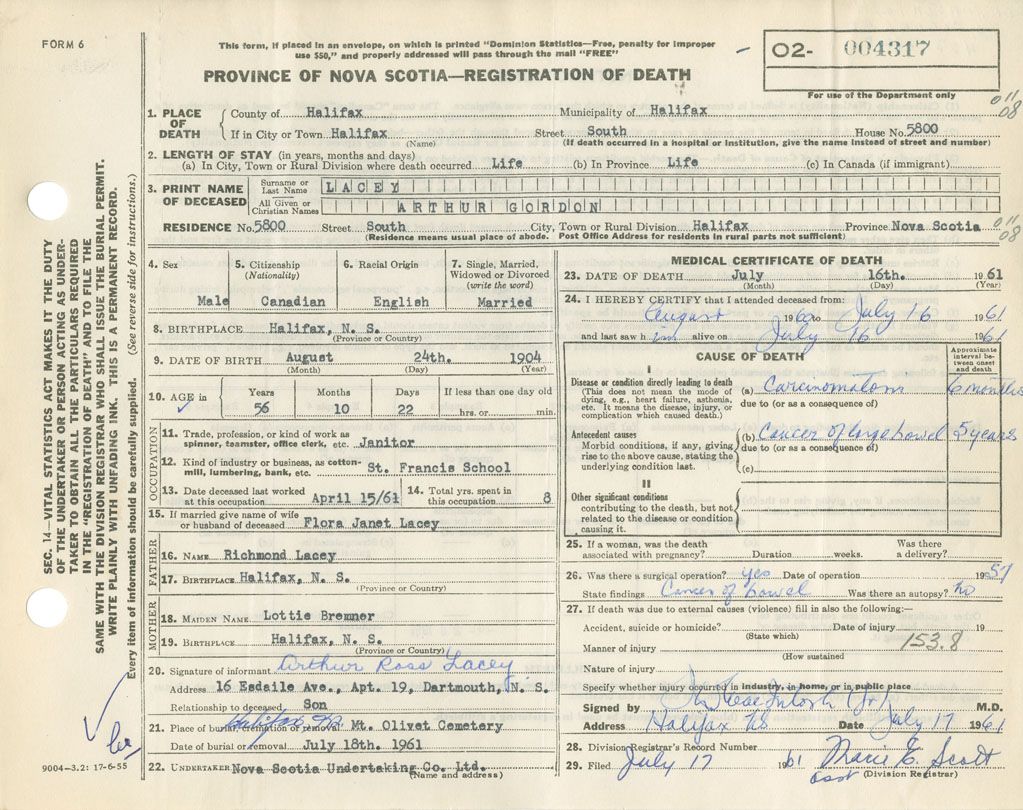 FORM 6
This form, if placed in an envelope, on which is printed "Dominion Statistics—Free, penalty for improper
use $50," and properly addressed will pass through the mail "FREE"
PROVINCE OF NOVA SCOTIA—REGISTRATION OF DEATH
02- 004317
For use of the Department only
011
08
SEC. 14—VITAL STATISTICS ACT MAKES IT THE DUTY
OF THE UNDERTAKER OR PERSON ACTING AS UNDER-
TAKER TO OBTAIN ALL THE PARTICULARS REQUIRED
IN THE "REGISTRATION OF DEATH" AND TO FILE THE
SAME WITH THE DIVISION REGISTRAR WHO SHALL ISSUE THE BURIAL PERMIT.
WRITE PLAINLY WITH UNFADING INK. THIS IS A PERMANENT RECORD.
Every item of information should be carefully supplied. (See reverse side for instructions.)
1. PLACE OF DEATH
County of Halifax Municipality of Halifax
If in City or Town Halifax Street South House No. 5800
(Name) (If death occurred in a hospital or institution, give the name instead of street and number)
2. LENGTH OF STAY (in years, months and days)
(a) In City, Town or Rural Division where death occurred Life (b) In Province Life (c) In Canada (if immigrant)
3. PRINT NAME OF DECEASED
Surname or Last Name LACEY
All Given or Christian Names ARTHUR GORDON
RESIDENCE No. 5800 Street South City, Town or Rural Division Halifax Province Nova Scotia
(Residence means usual place of abode. Post Office Address for residents in rural parts not sufficient)
011
08
4. Sex Male
5. Citizenship (Nationality) Canadian
6. Racial Origin English
7. Single, Married, Widowed or Divorced (write the word) Married
8. BIRTHPLACE Halifax, N. S.
(Province or Country)
9. DATE OF BIRTH August 24th. 1904
(Month) (Day) (Year)
10. AGE in ✓ Years 56 Months 10 Days 22 If less than one day old hrs. or min.
OCCUPATION
11. Trade, profession, or kind of work as spinner, teamster, office clerk, etc. Janitor
12. Kind of industry or business, as cotton-mill, lumbering, bank, etc. St. Francis School
13. Date deceased last worked at this occupation April 15/61
14. Total yrs. spent in this occupation 8
15. If married give name of wife or husband of deceased Flora Janet Lacey
FATHER
16. NAME Richmond Lacey
17. BIRTHPLACE Halifax, N. S.
(Province or Country)
MOTHER
18. MAIDEN NAME Lottie Bremner
19. BIRTHPLACE Halifax, N. S.
(Province or Country)
20. Signature of informant Arthur Ross Lacey
Address 16 Esdaile Ave., Apt. 19, Dartmouth, N. S.
Relationship to deceased Son
21. Place of burial, cremation or removal Mt. Olivet Cemetery
Date of burial or removal July 18th. 1961
22. UNDERTAKER Nova Scotia Undertaking Co. Ltd.
(Name and address)
9004-3.2: 17-6-55
MEDICAL CERTIFICATE OF DEATH
23. DATE OF DEATH July 16th. 1961
(Month) (Day) (Year)
24. I HEREBY CERTIFY that I attended deceased from:
August 1960 to July 16 1961
and last saw him alive on July 16 1961
CAUSE OF DEATH
Approximate interval between onset and death
I
Disease or condition directly leading to death
(This does not mean the mode of dying, e.g., heart failure, asthenia, etc. It means the disease, injury, or complication which caused death.)
(a) 6 months
due to (or as a consequence of)
Antecedent causes
Morbid conditions, if any, giving rise to the above cause, stating the underlying condition last.
(b) Cancer of large bowel 5 years
due to (or as a consequence of)
(c)
II
Other significant conditions
contributing to the death, but not related to the disease or condition causing it.
25. If a woman, was the death associated with pregnancy? Duration weeks. Was there a delivery?
26. Was there a surgical operation? yes Date of operation 1957
State findings Cancer of bowel Was there an autopsy? no
27. If death was due to external causes (violence) fill in also the following:—
Accident, suicide or homicide? Date of injury 19
(State which)
153.8
Manner of injury
(How sustained
Nature of injury
Specify whether injury occurred in industry, in home, or in public place
Signed by M.D.
Address Halifax NS Date July 17 1961
28. Division Registrar's Record Number
29. Filed July 17 1961 Marie E. Scott
asst (Division Registrar)